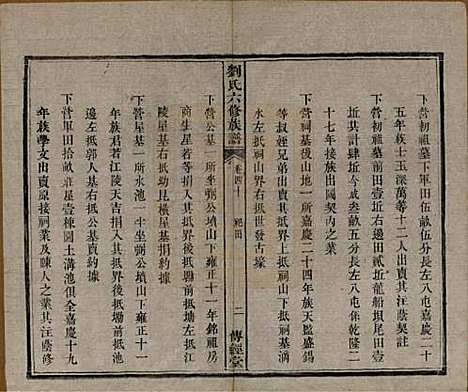 下營初祖墓下軍田伍畝伍分嘉慶二十
五年族士玉深萬等十二人出賣其注蔭契註
下營初祖墓前田壹坵右邊田貳坵龍船坝尾田壹
坵共計肆坵今成叁畝五分長左八屯係乾隆二
十七年接族出國契內之業
下營祠基後山地一所嘉慶二十四年族天監盛錫
等叔姪兄弟出賣其界左抵祠右抵
水左抵祠山界右抵世發古壕
劉氏六修族譜
卷四十
祀田
二
傳經堂
下營公基一所坐弼公墳山下雍正十一年銘祖房
商生星若等其抵界後抵墈前抵塘左抵江
陵星基右抵幼昆橫屋基捐約據
下營屋基一所永池坐弼公墳山下雍正十一
年族君若江陵天吉其抵界後抵墈前抵池
邊左抵郭人基右抵公基賣約據
下營軍田拾畝屋壹棟園土溝池俱全嘉慶十九
年族學文出賣原接祠業及陳人之業其注蔭修